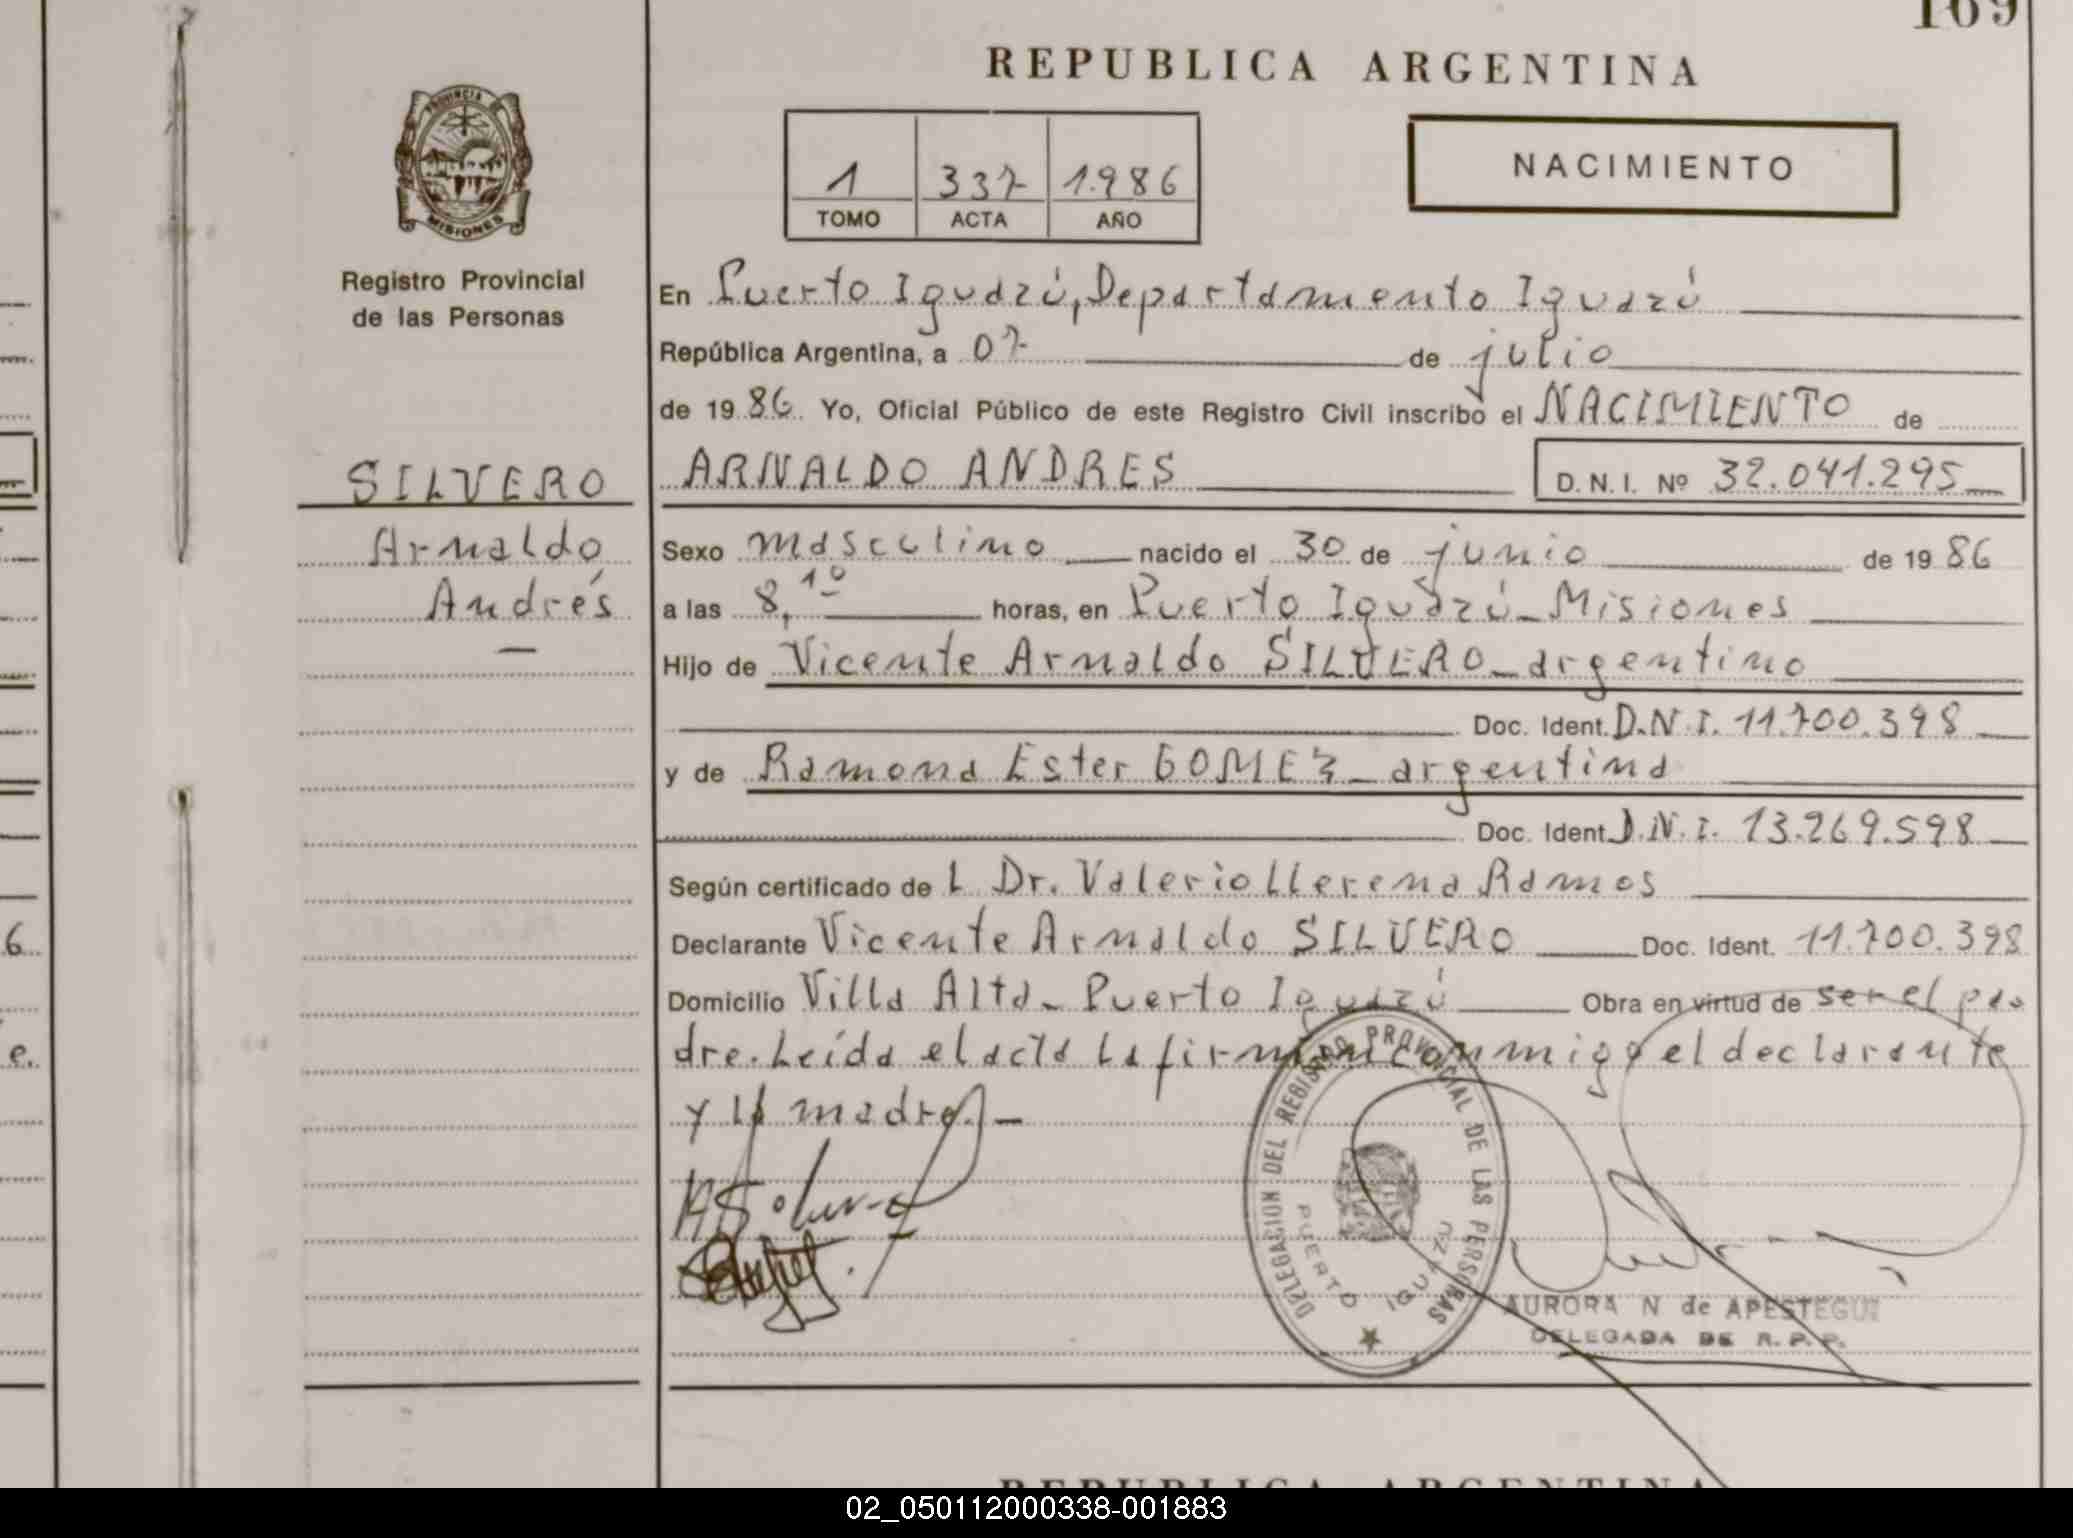 169
REPUBLICA ARGENTINA
PROVINCIA DE
MISIONES
Registro Provincial
de las Personas
1 337 1.986
TOMO ACTA AÑO
NACIMIENTO
En Puerto Iguazú, Departamento Iguazú
República Argentina, a 07 de julio
de 19 86. Yo, Oficial Público de este Registro Civil inscribo el NACIMIENTO de
SILVERO
ARNALDO ANDRES D.N.I. Nº 32.041.295
Arnaldo
Sexo masculino nacido el 30 de junio de 19 86
Andrés
a las 8,10 horas, en Puerto Iguazú_Misiones
Hijo de Vicente Arnaldo SILVERO_argentino
Doc. Ident. D.N.I. 11.700.398
y de Ramona Ester GOMEZ_argentina
Doc. Ident. D.N.I. 13.269.598
Según certificado de l Dr. Valerio Llerena Ramos
6
Declarante Vicente Arnaldo SILVERO Doc. Ident. 11.700.398
Domicilio Villa Alta_Puerto Iguazú Obra en virtud de ser el pa
e.
dre. Leída el acta la firman conmigo el declarante
y la madre._
DELEGACION DEL REGISTRO PROVINCIAL DE LAS PERSONAS
PUERTO IGUAZU
AURORA N de APESTEGUI
DELEGADA DE R.P.P.
REPUBLICA ARGENTINA
02_050112000338-001883